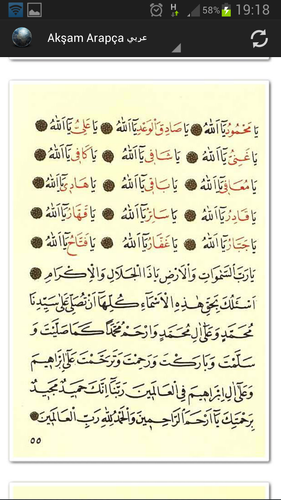 58% 19:18
Akşam Arapça عربي
يَا مَحْمُودُ يَا اَللهُ يَا صَادِقَ الْوَعْدِ يَا اَللهُ يَا عَلِىُّ يَا اَللهُ
يَا غَنِىُّ يَا اَللهُ يَا شَافِى يَا اَللهُ يَا كَافِى يَا اَللهُ
يَا مُعَافِى يَا اَللهُ يَا بَاقِى يَا اَللهُ يَا هَادِى يَا اَللهُ
يَا قَادِرُ يَا اَللهُ يَا سَاتِرُ يَا اَللهُ يَا قَهَّارُ يَا اَللهُ
يَا جَبَّارُ يَا اَللهُ يَا غَفَّارُ يَا اَللهُ يَا فَتَّاحُ يَا اَللهُ
يَارَبَّ السَّمٰوَاتِ وَالْاَرْضِ يَاذَا الْجَلَالِ وَالْاِكْرَامِ
اَسْئَلُكَ بِحَقِّ هٰذِهِ الْاَسْمَاءِ كُلِّهَا اَنْ تُصَلِّىَ عَلٰى سَيِّدِنَا
مُحَمَّدٍ وَعَلٰى اٰلِ مُحَمَّدٍ وَارْحَمْ مُحَمَّدًا كَمَا صَلَّيْتَ وَ
سَلَّمْتَ وَبَارَكْتَ وَرَحِمْتَ وَتَرَحَّمْتَ عَلٰى اِبْرَاهِيمَ
وَعَلٰى اٰلِ اِبْرَاهِيمَ فِى الْعَالَمِينَ رَبَّنَا اِنَّكَ حَمِيدٌ مَجِيدٌ
بِرَحْمَتِكَ يَا اَرْحَمَ الرَّاحِمِينَ وَالْحَمْدُ لِلّٰهِ رَبِّ الْعَالَمِينَ
٥٥